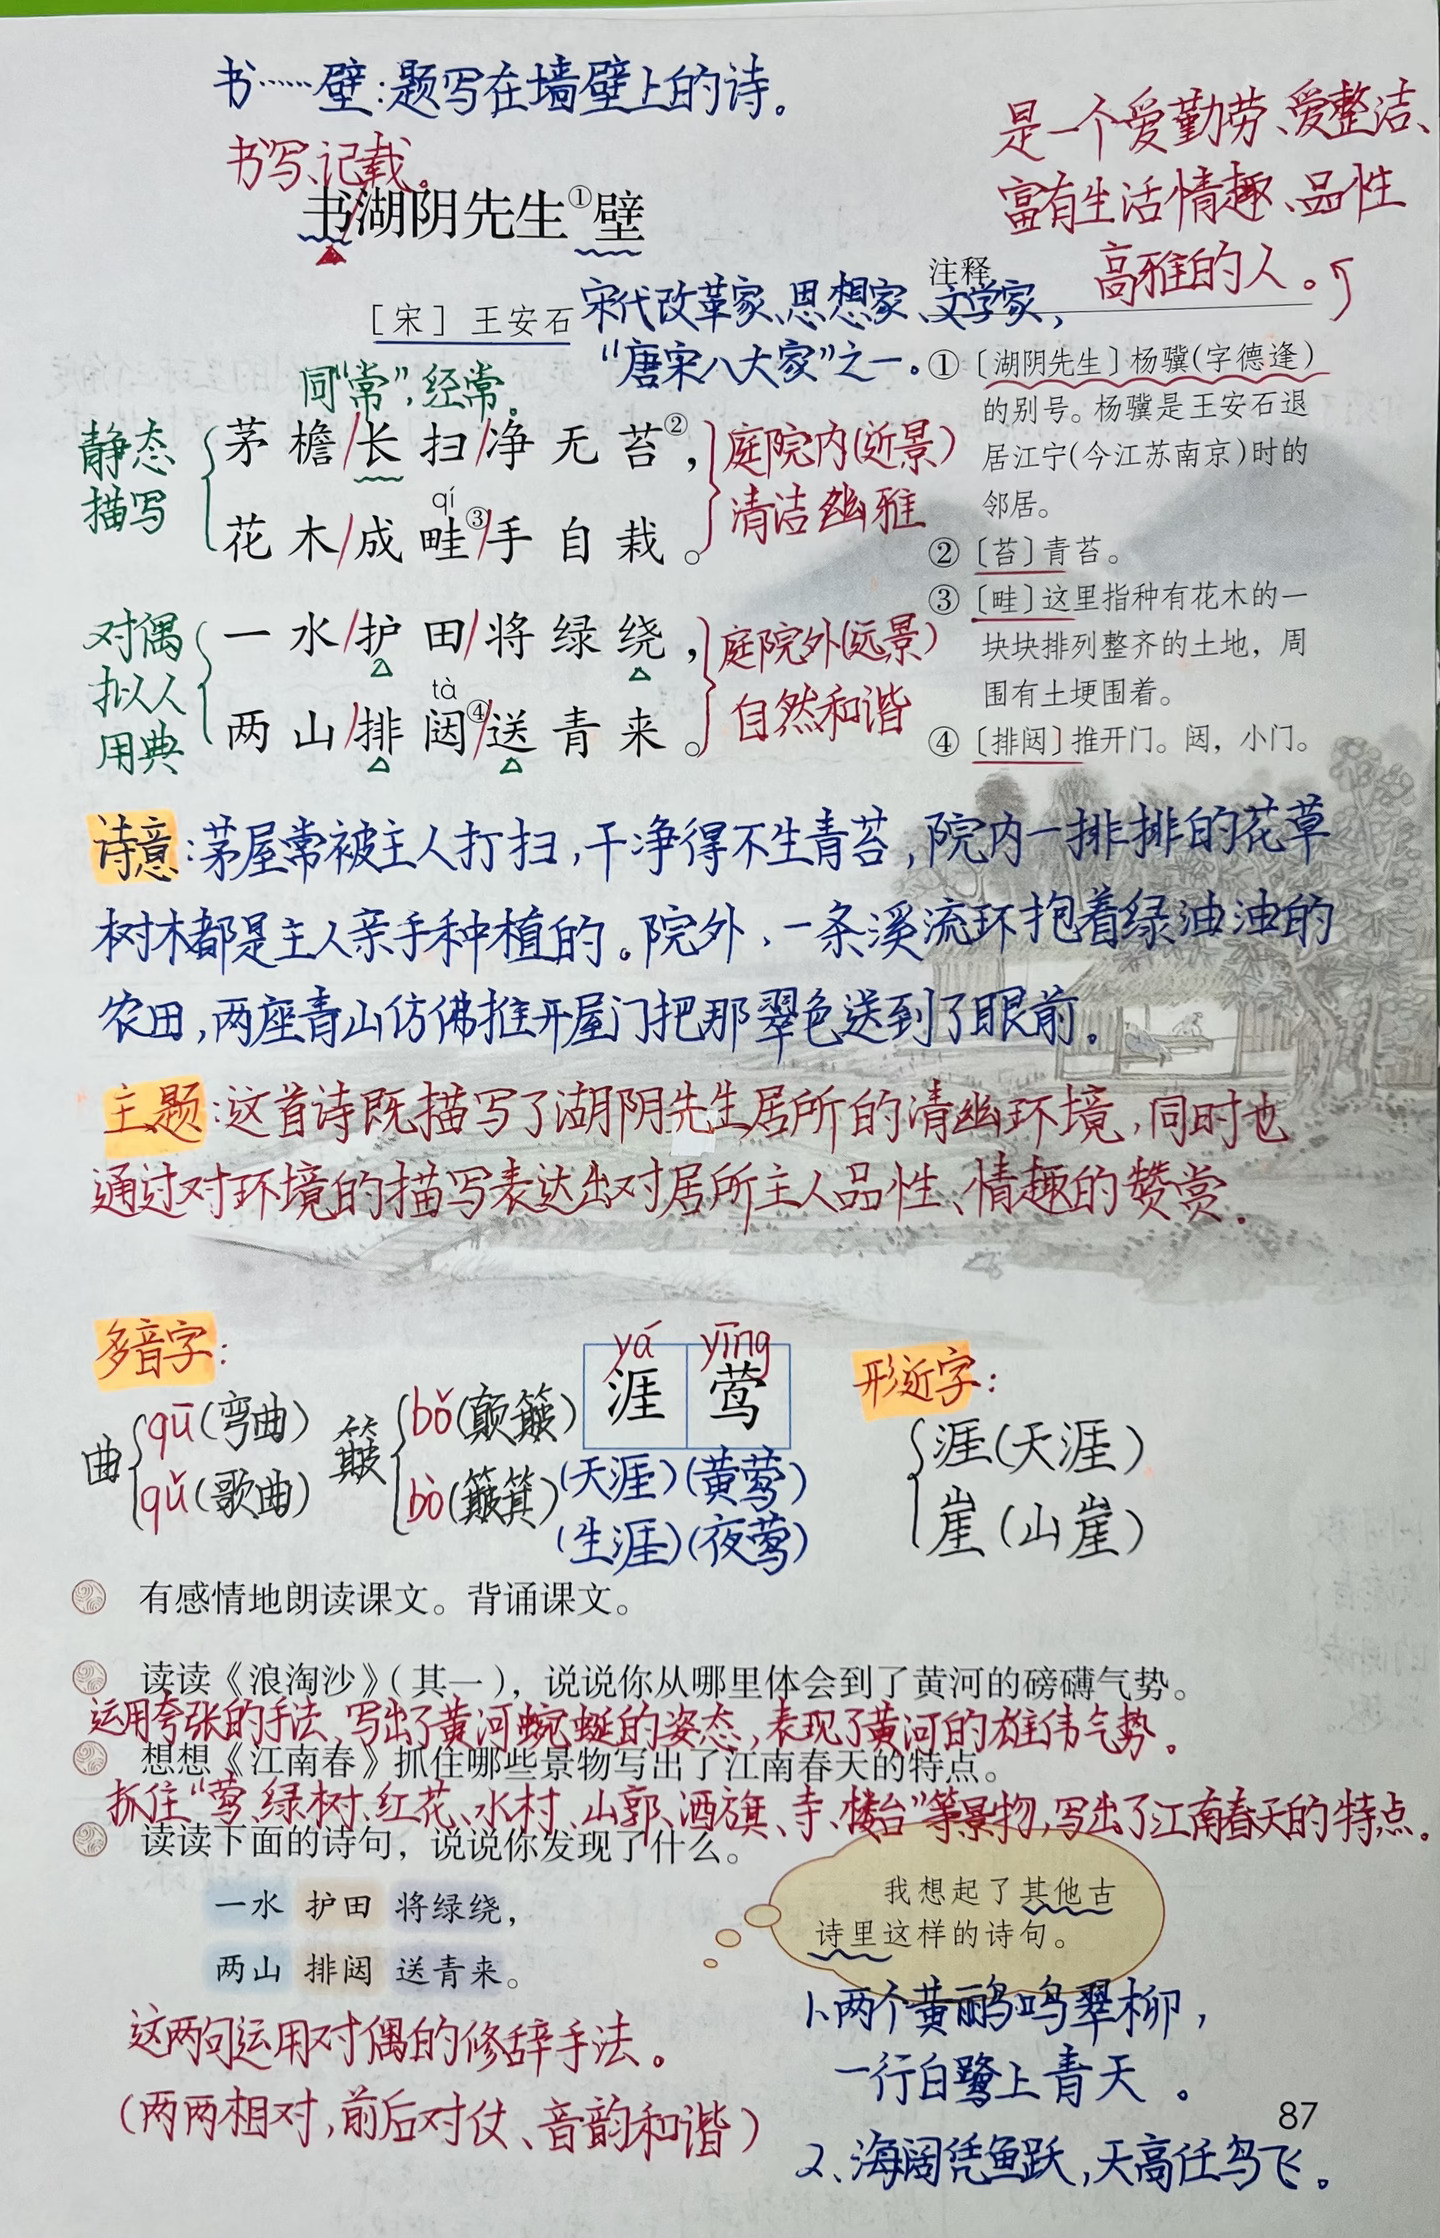 书……壁:题写在墙壁上的诗。
书写、记载。
是一个爱勤劳、爱整洁、
富有生活情趣、品性
高雅的人。
书湖阴先生①壁
[宋] 王安石
宋代改革家、思想家、文学家,
“唐宋八大家”之一。
同“常”,经常。
静态
描写
茅檐/长扫/净无苔②,
qí
花木/成畦③/手自栽。
庭院内(近景)
清洁幽雅
对偶
拟人
用典
一水/护田/将绿绕,
tà
两山/排闼④/送青来。
庭院外(远景)
自然和谐
注释
①〔湖阴先生〕杨骥(字德逢)
的别号。杨骥是王安石退
居江宁(今江苏南京)时的
邻居。
②〔苔〕青苔。
③〔畦〕这里指种有花木的一
块块排列整齐的土地,周
围有土埂围着。
④〔排闼〕推开门。闼,小门。
诗意:茅屋常被主人打扫,干净得不生青苔,院内一排排的花草
树木都是主人亲手种植的。院外,一条溪流环抱着绿油油的
农田,两座青山仿佛推开屋门把那翠色送到了眼前。
主题:这首诗既描写了湖阴先生居所的清幽环境,同时也
通过对环境的描写表达出对居所主人品性、情趣的赞赏.
多音字:
曲 qū(弯曲)
qǔ(歌曲)
簸 bǒ(颠簸)
bò(簸箕)
yá yīng
涯 莺
(天涯)(黄莺)
(生涯)(夜莺)
形近字:
涯(天涯)
崖(山崖)
有感情地朗读课文。背诵课文。
读读《浪淘沙》(其一),说说你从哪里体会到了黄河的磅礴气势。
运用夸张的手法,写出了黄河蜿蜒的姿态,表现了黄河的雄伟气势。
想想《江南春》抓住哪些景物写出了江南春天的特点。
抓住“莺、绿树、红花、水村、山郭、酒旗、寺、楼台”等景物,写出了江南春天的特点。
读读下面的诗句,说说你发现了什么。
一水 护田 将绿绕,
两山 排闼 送青来。
我想起了其他古
诗里这样的诗句。
这两句运用对偶的修辞手法。
(两两相对,前后对仗、音韵和谐)
1、两个黄鹂鸣翠柳,
一行白鹭上青天。
2、海阔凭鱼跃,天高任鸟飞。
87